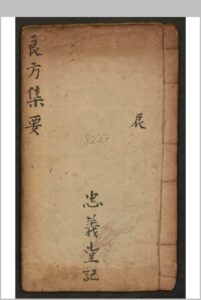 良方集要
8227
忠義堂記